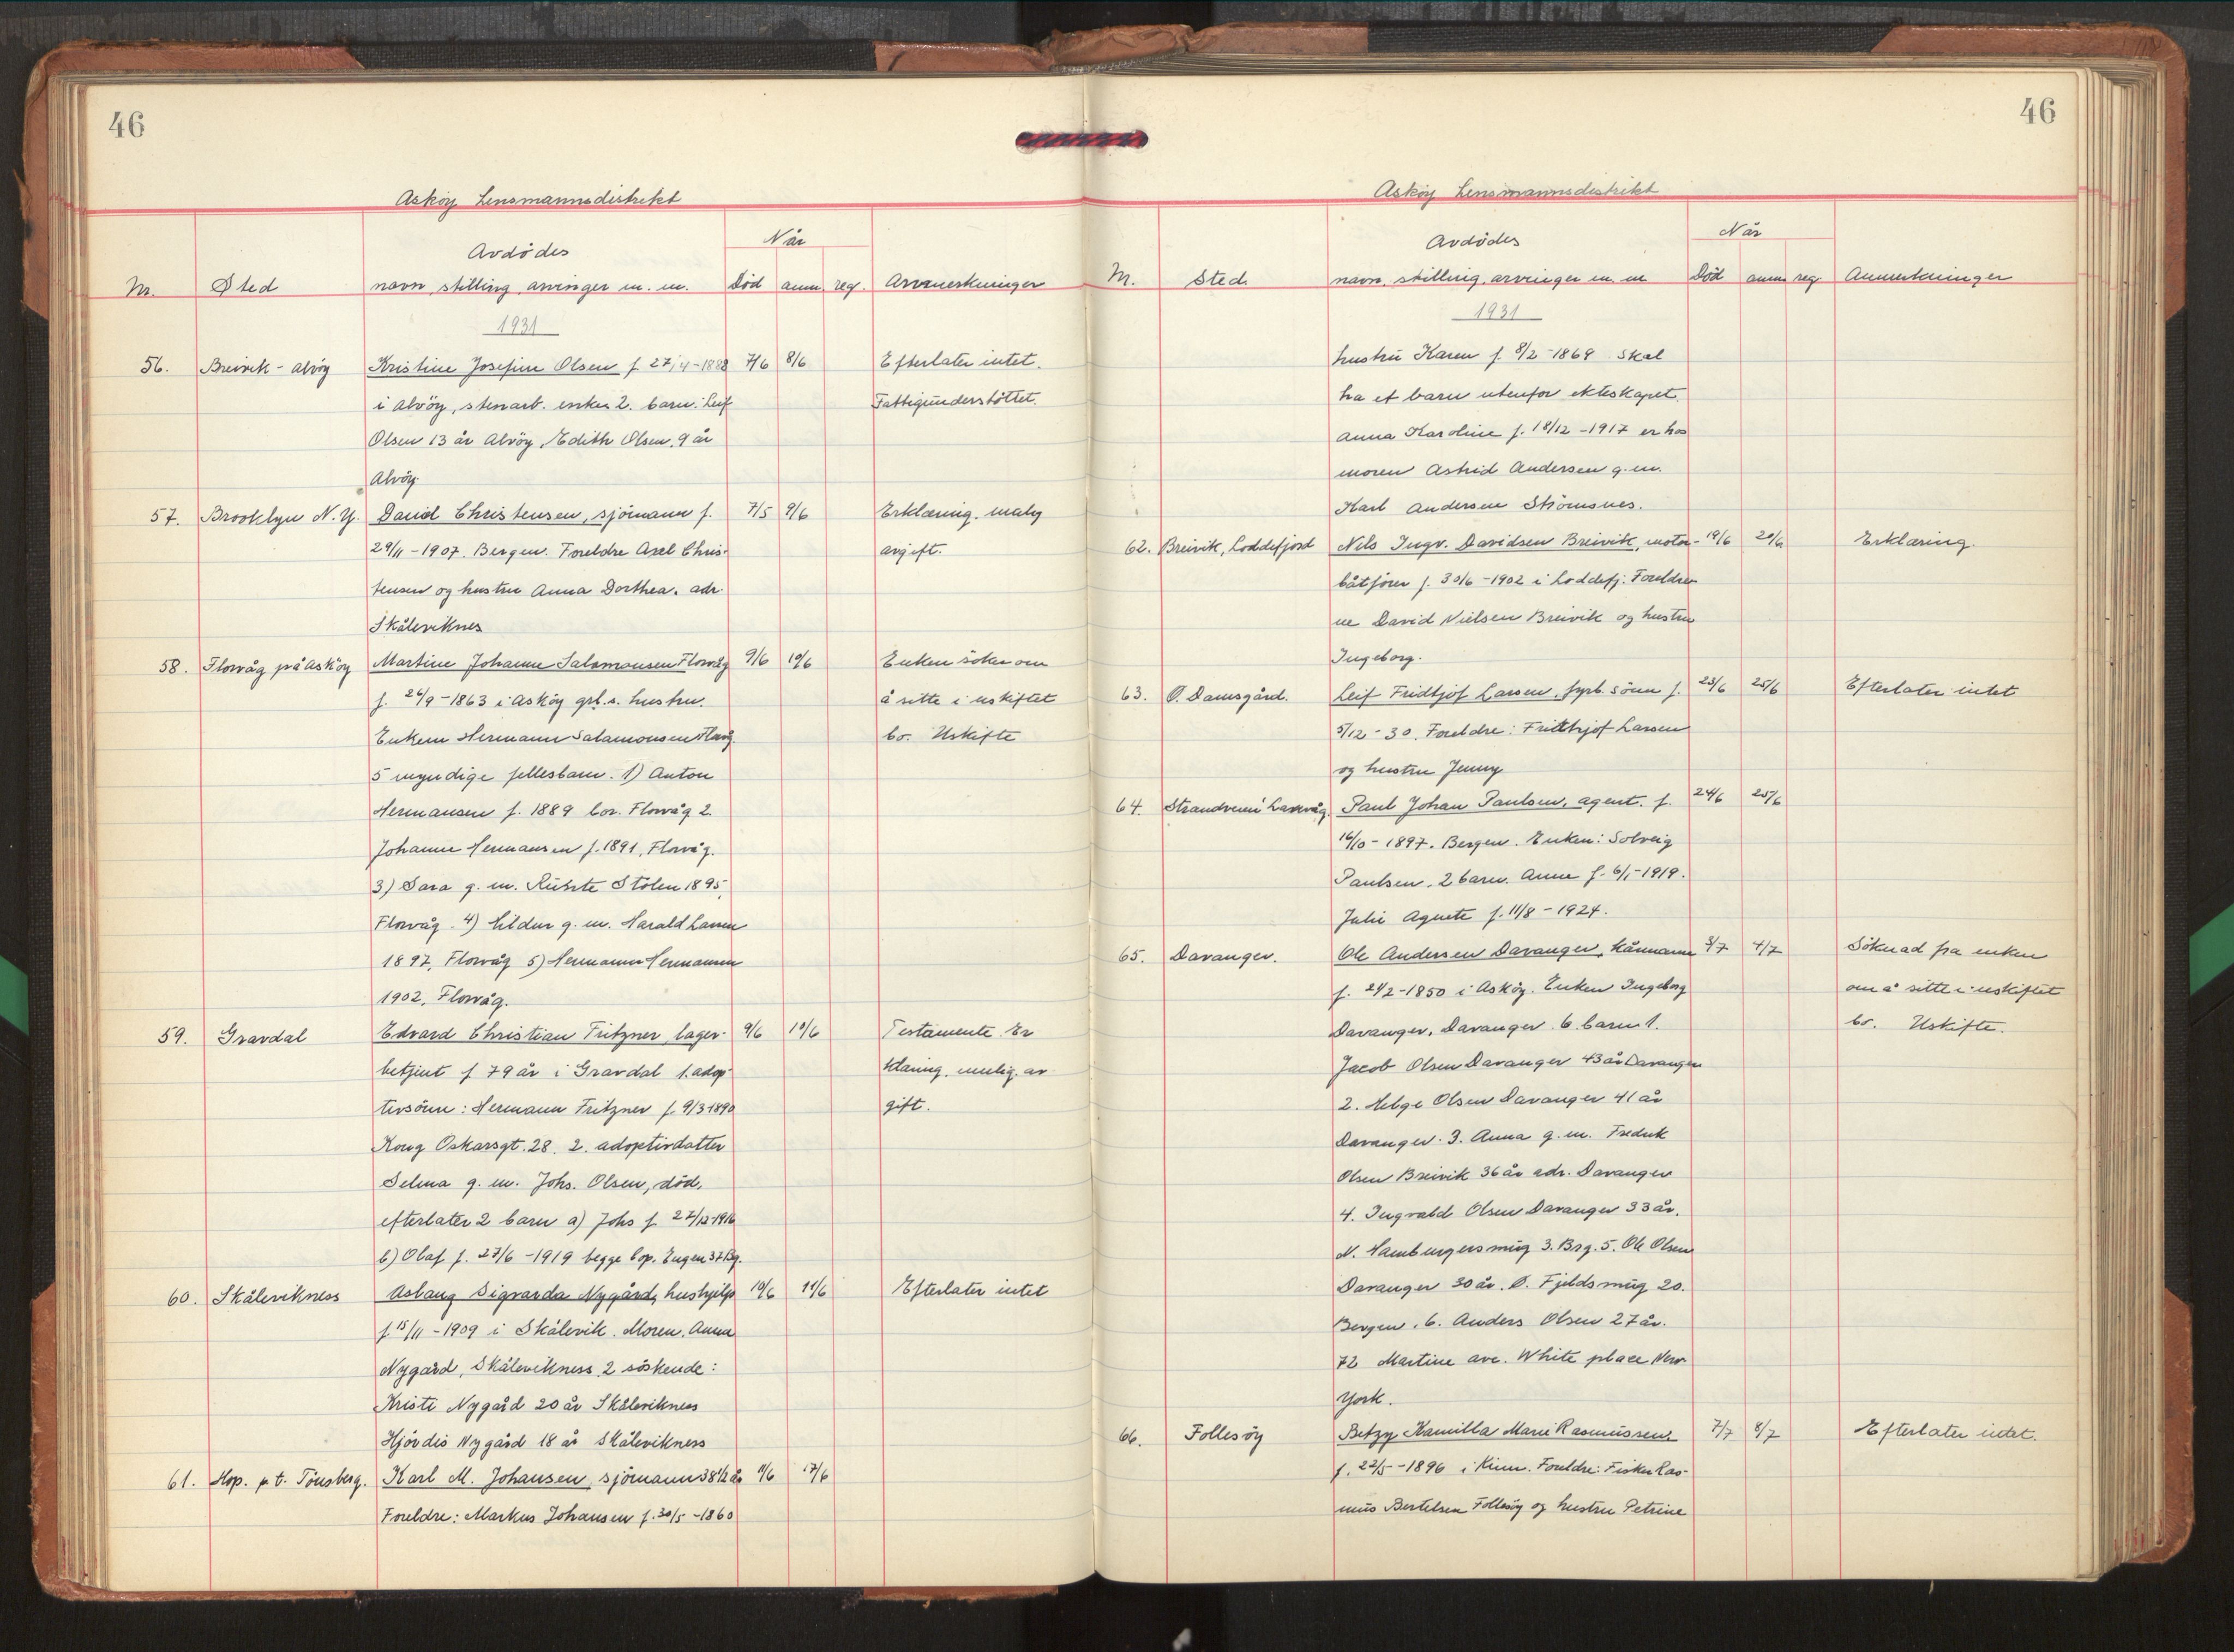 46
Asköy Lensmannsdistrikt
Når
Avdödes
Nr. Sted navn, stilling, arvinger m. m. Död anm. reg. Anmerkninger
1931
56. Breivik - Alvöy Kristine Josefine Olsen f. 27/4-1888 7/6 8/6 Efterlater intet.
i Alvöy, stenarb. enke 2. barn: Leif Fattigunderstöttet.
Olsen 13 år Alvöy, Edith Olsen, 9 år
Alvöy.
57. Brooklyn N. Y. David Christensen, sjömann f. 7/5 9/6 Erklæring. mulig
29/11-1907. Bergen. Foreldre Axel Chris- avgift.
tensen og hustru Anna Dorthea. adr.
Skåleviknes
58. Florvåg på Asköy Martine Johanne Salomonsen Florvåg 9/6 10/6 Enken söker om
f. 26/9-1863 i Asköy grb. s. hustru. å sitte i uskiftet
Enkem Hermann Salamonsen Florvåg. bo. Uskifte
5 myndige fellesbarn. 1) Anton
Hermansen f. 1889 bor. Florvåg 2.
Johanne Hermansen f. 1891, Florvåg.
3) Sara g. m. Stölen 1895,
Florvåg. 4) Hildur g. m. Harald Larsen
1897, Florvåg 5) Hermann Hermansen
1902, Florvåg.
59. Gravdal Edvard Christian Fritzner, lager- 9/6 10/6 Testamente. Er
betjent f. 79 år i Gravdal 1. adop- klæring. mulig. av
tivsönn: Hermann Fritzner f. 9/3 1890 gift.
Kong Oskarsgt. 28. 2. adoptivdatter
Selma g. m. Johs. Olsen, död,
efterlater 2 barn a) Johs f. 27/12-1916
b) Olaf f. 27/6-1919 begge bop. Engen 37 Bg.
60. Skålevikness Aslaug Sigvarda Nygård, hushjelp 10/6 11/6 Efterlater intet
f. 15/11-1909 i Skålevik. Moren. Anna
Nygård, Skålevikness, 2 söskende:
Kristi Nygård 20 år Skålevikness
Hjördis Nygård 18 år Skålevikness
61. Hop. p. t. Tönsberg. Karl M. Johansen, sjömann 38 1/2 år 11/6 17/6
Foreldre: Markus Johansen f. 30/5-1860
46
Asköy Lensmannsdistrikt
Når
Avdödes
Nr. Sted navn, stilling, arvinger m. m Död anm. reg. Anmerkninger
1931
hustru Karen f. 8/2-1869 Skal
ha et barn utenfor ekteskapet.
Anna Karoline f. 18/12-1917 er hos
moren Astrid Andersen g. m.
Karl Andersen Strömsnes.
62. Breivik, Loddefjord Nils Ingv. Davidsen Breivik, motor- 19/6 20/6 Erklæring.
båtförer f. 30/6-1902 i Loddefj. Foreldre
ne David Nielsen Breivik og hustru
Ingeborg.
63. Ö. Damsgård. Leif Fridtjof Larsen, fyrb. sönn f. 23/6 25/6 Efterlater intet
5/12-30. Foreldre: Fridthjof Larsen
og hustru Jenny
64. Strandveien Laksevåg. Paul Johan Paulsen, agent. f. 24/6 25/6
16/10-1897. Bergen. Enken: Solveig
Paulsen. 2 barn. Anne f. 6/5-1919.
Julie Agnete f. 11/8-1924.
65. Davanger. Ole Andersen Davanger, kårmann 3/7 4/7 Söknad fra enken
f. 24/2-1850 i Asköy. Enken Ingeborg om å sitte i uskiftet
Davanger, Davanger. 6. barn 1. bo. Uskifte.
Jacob Olsen Davanger 43 år Davanger
2. Helge Olsen Davanger 41 år
Davanger. 3. Anna g. m. Fredrik
Olsen Breivik 36 år adr. Davanger
4. Ingvald Olsen Davanger 33 år.
N. Hamburgersmug 3. Brg. 5. Ole Olsen
Davanger 30 år. Ö. Fjeldsmug 20.
Bergen. 6. Anders Olsen 27 år.
72 Martine ave. White place New
York.
66. Follesöy Betzy Kamilla Marie Rasmussen 7/7 8/7 Efterlater intet.
f. 22/5-1896 i Kinn. Foreldre: Fisker Ras-
mus Bertelsen Follesöy og hustru Petrine